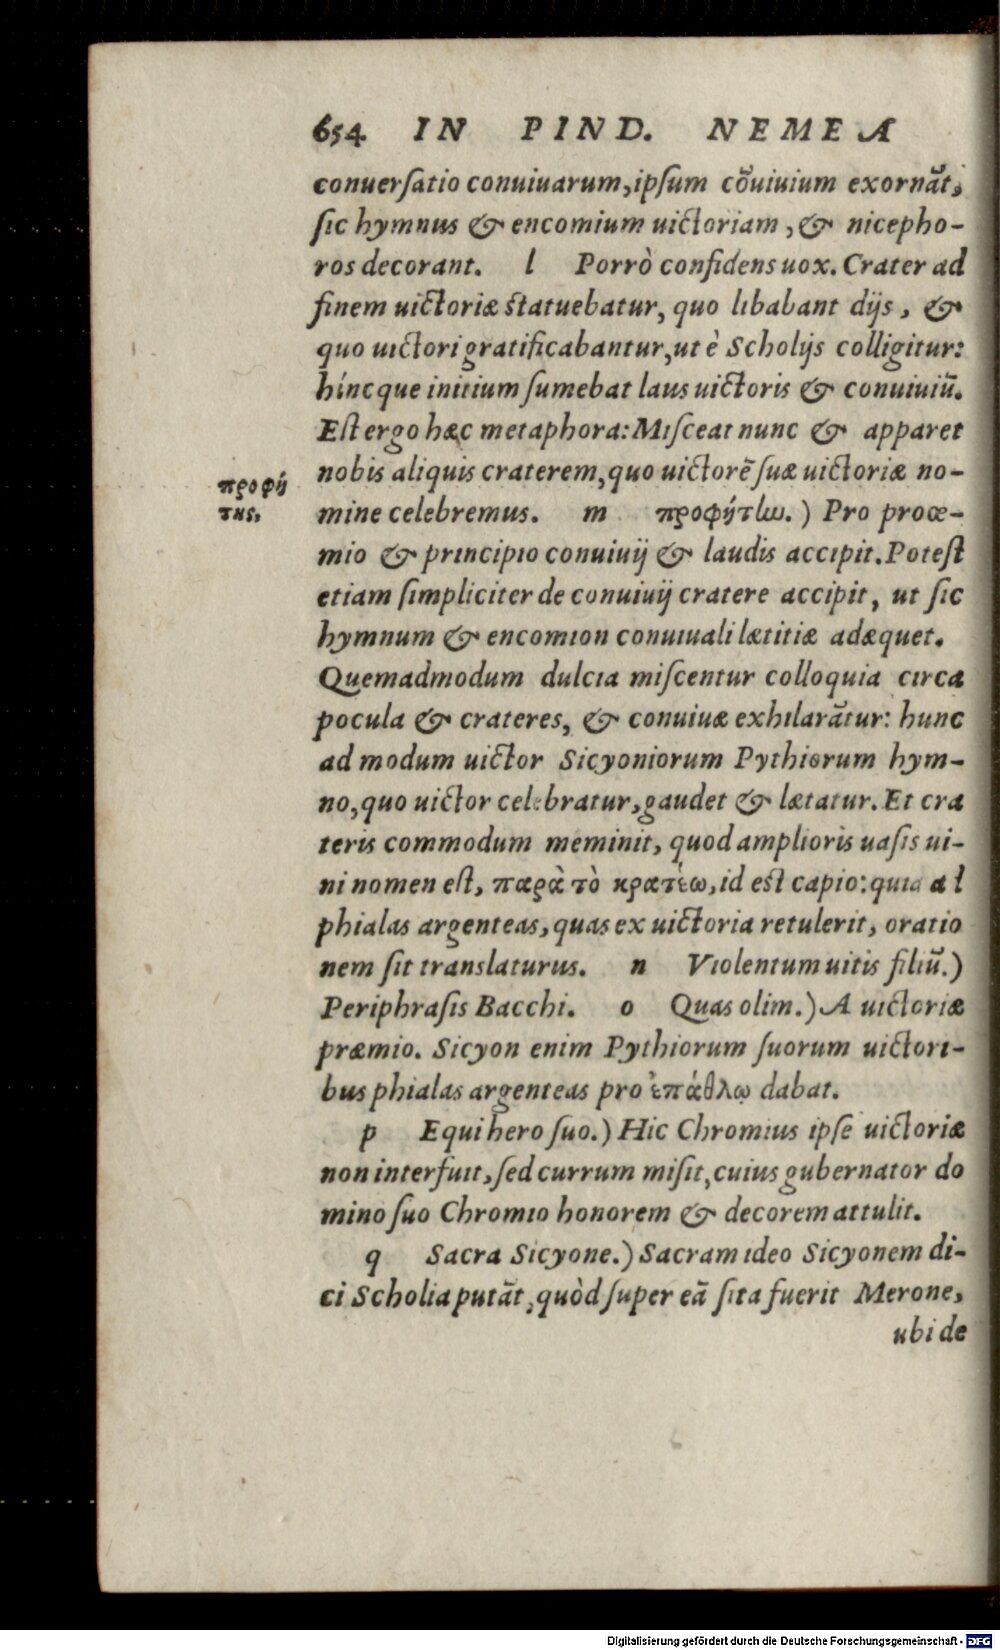 654 IN PIND. NEMEA
conuerſatio conuiuarum, ipſum cõuiuium exornãt,
ſic hymnus & encomium uictoriam, & nicepho-
ros decorant. l Porrò confidens uox. Crater ad
finem uictoriæ ſtatuebatur, quo libabant dijs, &
quo uictori gratificabantur, ut è Scholijs colligitur:
híncque initium ſumebat laus uictoris & conuiuiũ.
Eſt ergo hæc metaphora: Miſceat nunc & apparet
nobis aliquis craterem, quo uictorẽ ſuæ uictoriæ no-
προφή
της.
mine celebremus. m προφήτἰω.) Pro proœ-
mio & principio conuiuij & laudis accipit. Poteſt
etiam ſimpliciter de conuiuij cratere accipit, ut ſic
hymnum & encomion conuiuali lætitiæ adæquet.
Quemadmodum dulcia miſcentur colloquia circa
pocula & crateres, & conuiuæ exhilarãtur: hunc
ad modum uictor Sicyoniorum Pythiorum hym-
no, quo uictor celebratur, gaudet & lætatur. Et cra
teris commodum meminit, quod amplioris uaſis ui-
ni nomen eſt, παρὰ τὸ κρατέω, id eſt capio: quia al
phialas argenteas, quas ex uictoria retulerit, oratio
nem ſit translaturus. n Violentum uitis filiũ.)
Periphraſis Bacchi. o Quas olim.) A uictoriæ
præmio. Sicyon enim Pythiorum ſuorum uictori-
bus phialas argenteas pro ἐπάθλῳ dabat.
p Equi hero ſuo.) Hic Chromius ipſe uictoriæ
non interfuit, ſed currum miſit, cuius gubernator do
mino ſuo Chromio honorem & decorem attulit.
q Sacra Sicyone.) Sacram ideo Sicyonem di-
ci Scholia putãt, quòd ſuper eã ſita fuerit Merone,
ubi de
Digitalisierung gefördert durch die Deutsche Forschungsgemeinschaft - DFG